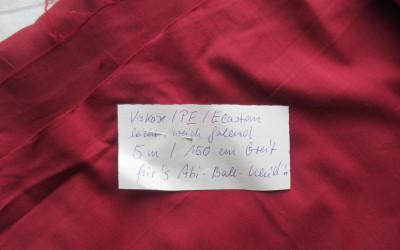 Viskose / PE / Elastan
leicht, weich fallend
5 m / 150 cm breit
für's Abi-Ball-Kleid!